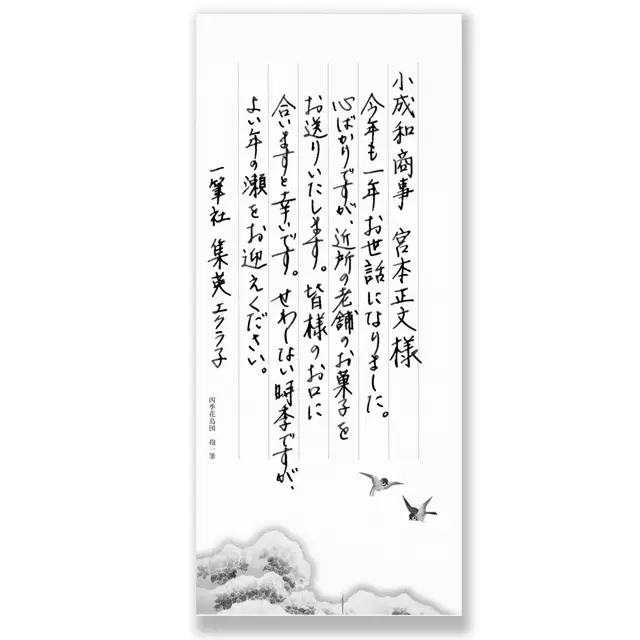 小成和商事 宮本正文様
今年も一年お世話になりました。
心ばかりですが、近所の老舗のお菓子を
お送りいたします。皆様のお口に
合いますと幸いです。せわしない時季ですが、
よい年の瀬をお迎えください。
一筆社 集英エクラ子
四季花鳥図 抱一筆